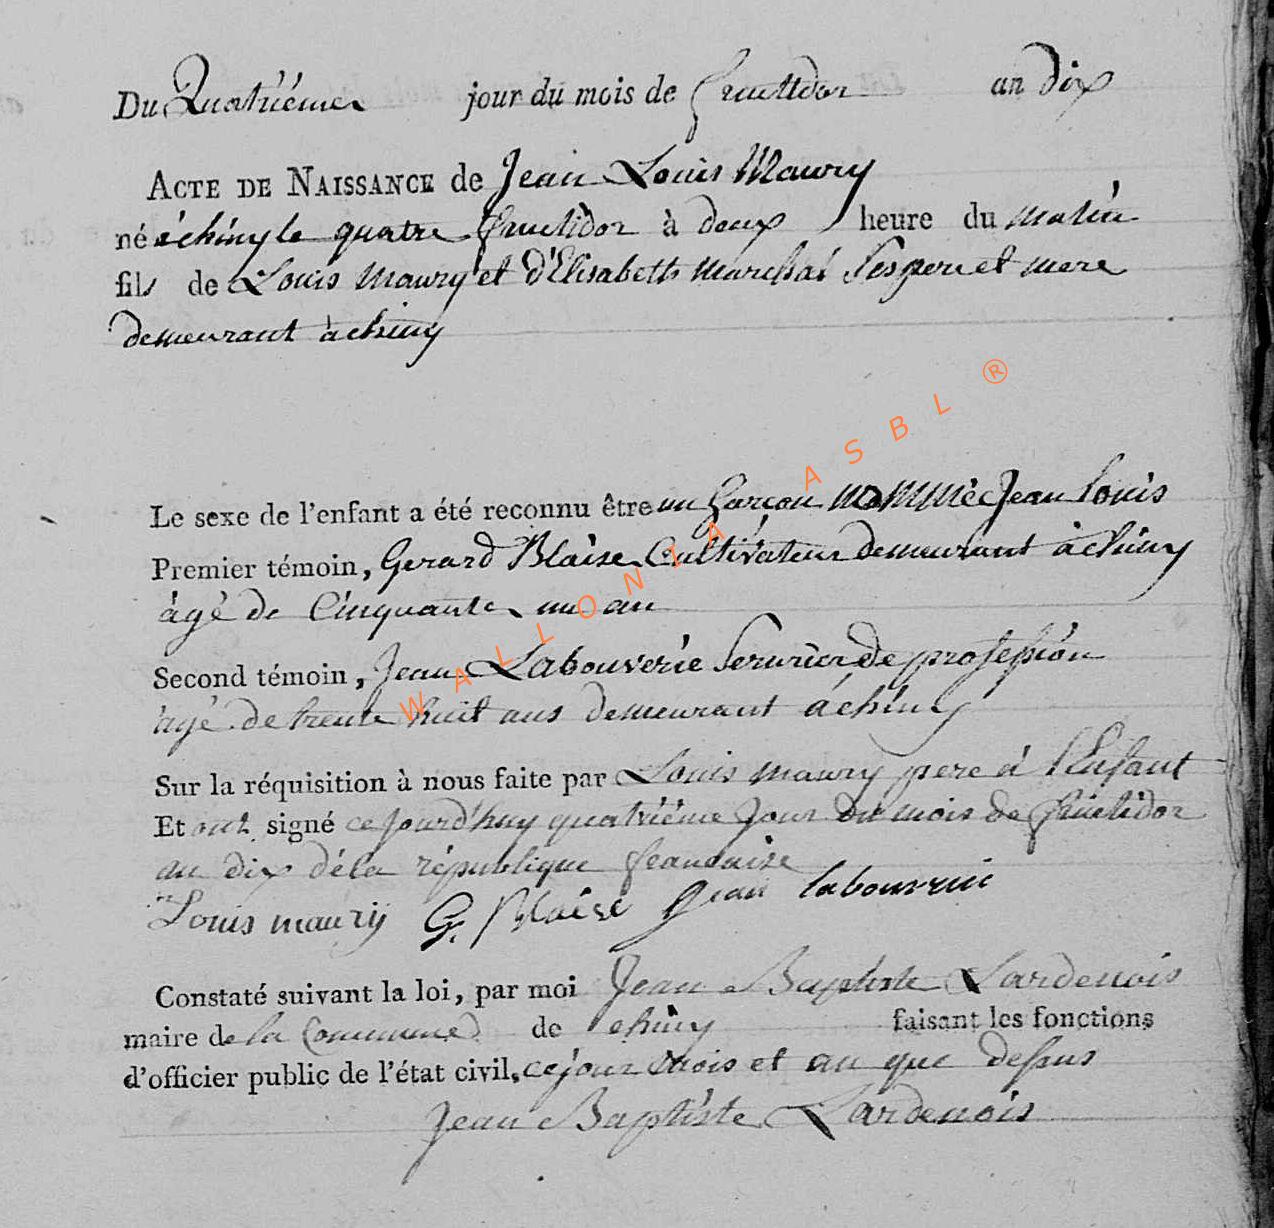 Du Quatriéme jour du mois de fructidor an dix
ACTE DE NAISSANCE de Jean Louis Maury
né à chiny le quatre fructidor à deux heure du matin
fils de Louis Maury et d'Elisabeth Marchal ses pere et mere
demeurant à chiny
Le sexe de l'enfant a été reconnu être un Garcon nommé Jean Louis
Premier témoin, Gerard Blaise Cultivateur demeurant à chiny
àgé de Cinquante un an
Second témoin, Jean Labouverie Serurier de profession
àgé de trente huit ans demeurant à chiny
Sur la réquisition à nous faite par Louis maury pere à l'Enfant
Et ont signé ce jourd'huy quatriéme jour du mois de fructidor
an dix déla république francaise
Louis maury G. Blaise Jean labouverie
Constaté suivant la loi, par moi Jean Baptiste Lardenois
maire de la Commune de chiny faisant les fonctions
d'officier public de l'état civil, ce jour mois et an que dessus
Jean Baptiste Lardenois
WALLONIA ASBL ®